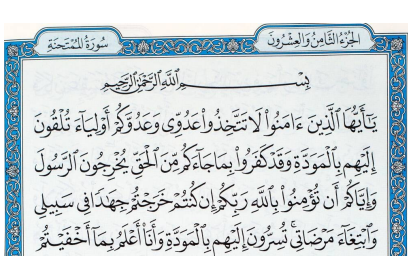 الجُزْءُ الثَّامِنُ وَالعِشْرُونَ سُورَةُ المُمْتَحنَةِ
بِسْمِ اللَّهِ الرَّحْمَٰنِ الرَّحِيمِ
يَٰٓأَيُّهَا ٱلَّذِينَ ءَامَنُواْ لَا تَتَّخِذُواْ عَدُوِّى وَعَدُوَّكُمْ أَوْلِيَآءَ تُلْقُونَ
إِلَيْهِم بِٱلْمَوَدَّةِ وَقَدْ كَفَرُواْ بِمَا جَآءَكُم مِّنَ ٱلْحَقِّ يُخْرِجُونَ ٱلرَّسُولَ
وَإِيَّاكُمْ أَن تُؤْمِنُواْ بِٱللَّهِ رَبِّكُمْ إِن كُنتُمْ خَرَجْتُمْ جِهَٰدًا فِى سَبِيلِى
وَٱبْتِغَآءَ مَرْضَاتِى ۚ تُسِرُّونَ إِلَيْهِم بِٱلْمَوَدَّةِ وَأَنَا۠ أَعْلَمُ بِمَآ أَخْفَيْتُمْ